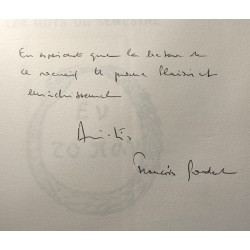 En espérant que la lecture de
ce recueil te procure Plaisir et
enrichissement
Amitiés
Francis